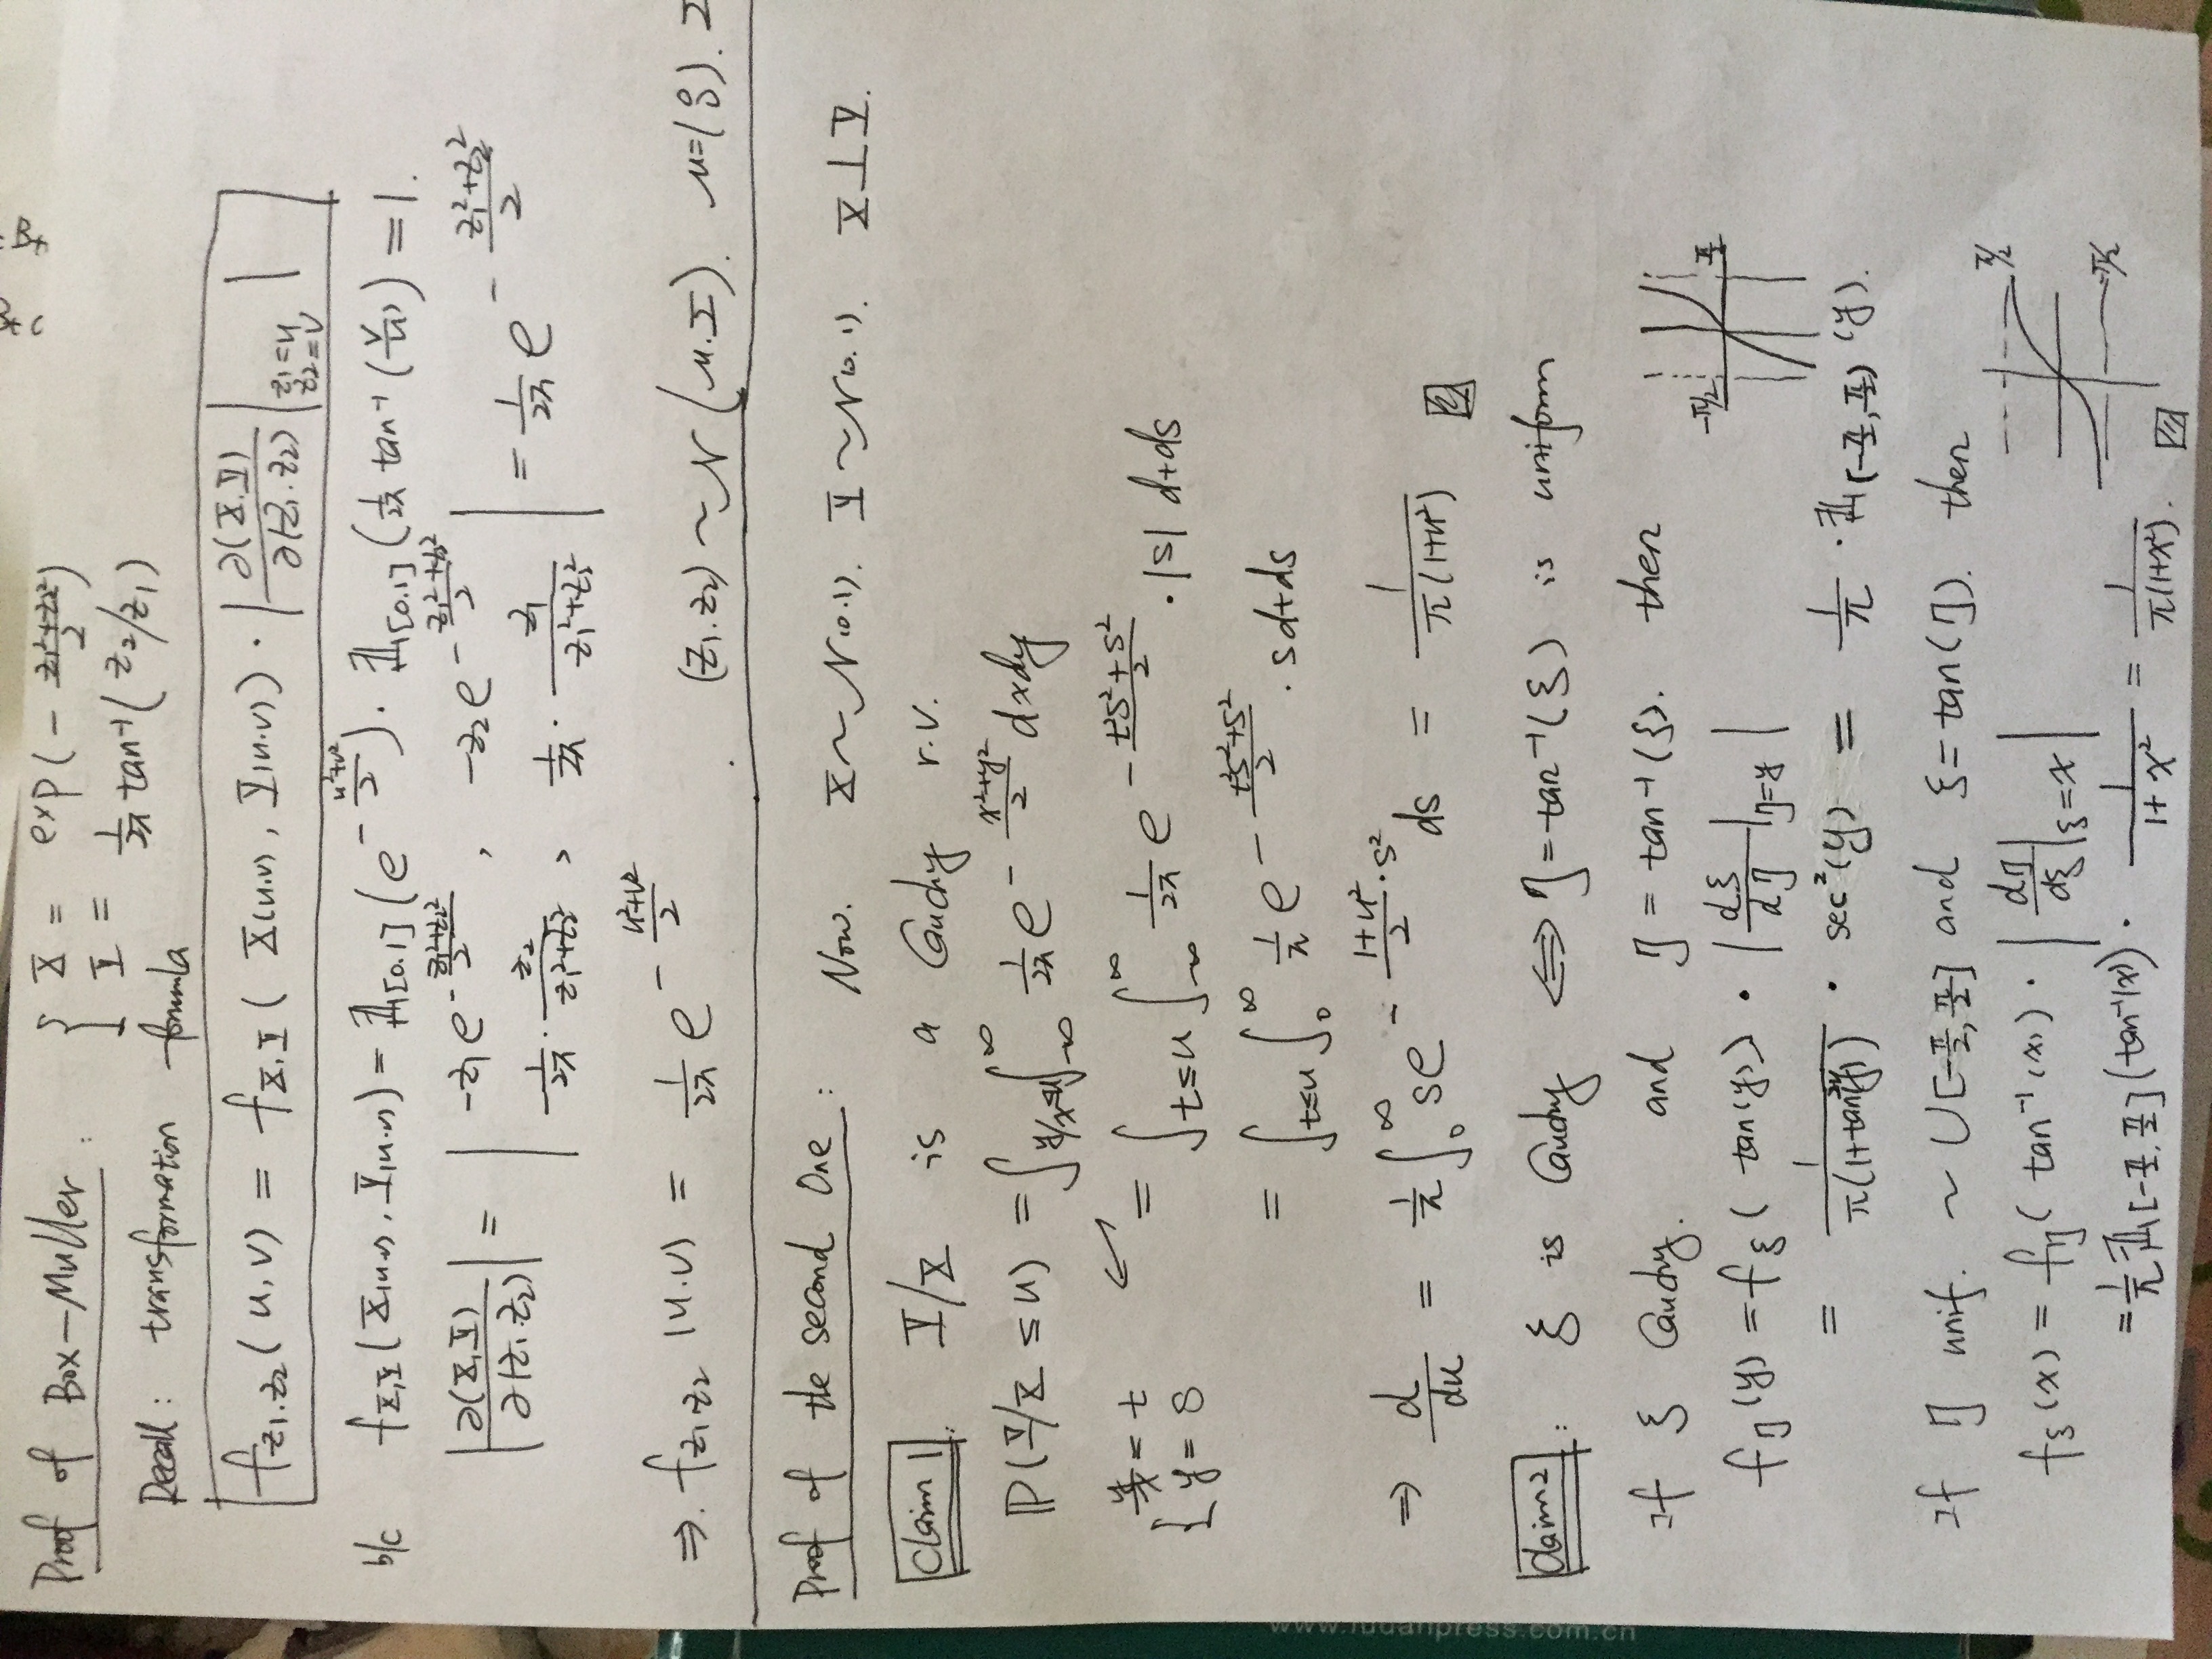 Proof of Box-Muller : { X = exp(- (z₁²+z₂²)/2)
Y = 1/2π tan⁻¹(z₂/z₁)
Recall: transformation formula
f_{z₁.z₂}(u,v) = f_{X,Y}( X(u.v), Y(u.v)) · | ∂(X.Y)/∂(z₁.z₂) |_{z₁=u z₂=v} |
b/c f_{X,Y}(X(u.v), Y(u.v)) = 𝟙_{[0.1]}(e^{-(u²+v²)/2}) · 𝟙_{[0.1]}(1/2π tan⁻¹(v/u)) = 1.
|∂(X,Y)/∂(z₁.z₂)| = | -z₁e^{-(z₁²+z₂²)/2} , -z₂e^{-(z₁²+z₂²)/2}
-1/2π · z₂/(z₁²+z₂²) , 1/2π · z₁/(z₁²+z₂²) | = 1/2π e^{-(z₁²+z₂²)/2}
⇒. f_{z₁.z₂}(u.v) = 1/2π e^{-(u²+v²)/2} . (z₁.z₂) ~ N(μ.Σ). μ=(0 0). Σ
Proof of the second One : Now. X~N(0.1). Y~N(0.1). X⊥Y.
Claim 1. Y/X is a Cauchy r.v.
ℙ(Y/X ≤ u) = ∫_{y/x≤u} ∫_{-∞}^{∞} 1/2π e^{-(x²+y²)/2} dxdy
{ y/x = t
y = s
↙ = ∫_{t≤u} ∫_{-∞}^{∞} 1/2π e^{-(t²s²+s²)/2} · |s| dtds
= ∫_{t≤u} ∫_0^∞ 1/π e^{-(t²s²+s²)/2} · s dtds
⇒ d/du = 1/π ∫_0^∞ s e^{-(1+u²)/2 · s²} ds = 1/(π(1+u²))
Claim 2 : ξ is Cauchy ⟺ η = tan⁻¹(ξ) is uniform
If ξ Cauchy. and η = tan⁻¹(ξ). then
-π/2 π/2
f_η(y) = f_ξ( tan(y)) · | dξ/dη |_{η=y} |
= 1/(π(1+tan²(y))) · sec²(y) = 1/π · 𝟙_{(-π/2, π/2)}(y).
If η unif. ~ U[-π/2, π/2] and ξ = tan(η). then
π/2
f_ξ(x) = f_η( tan⁻¹(x)) · | dη/dξ |_{ξ=x} |
-π/2
= 1/π 𝟙_{[-π/2, π/2]}(tan⁻¹(x)) · 1/(1+x²) = 1/(π(1+x²)).